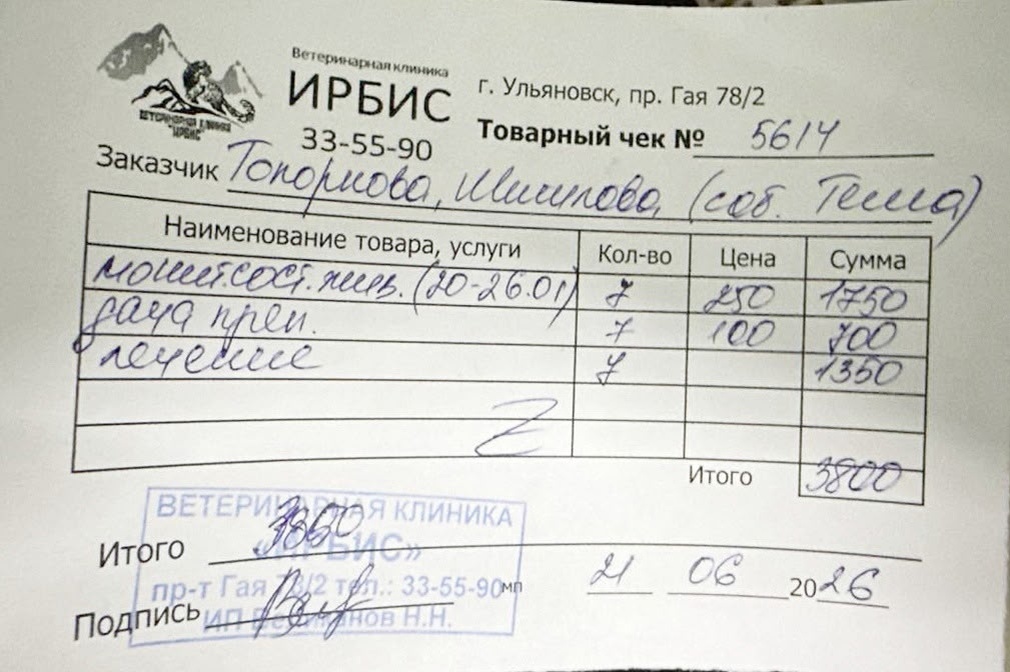 ВЕТЕРИНАРНАЯ КЛИНИКА
"ИРБИС"
Ветеринарная клиника
ИРБИС
33-55-90
г. Ульяновск, пр. Гая 78/2
Товарный чек № 5614
Заказчик Топоркова, (соб. Тема)
Наименование товара, услуги Кол-во Цена Сумма
монит.сост.жив. (20-26.01) 7 250 1750
дача преп. 7 100 700
лечение 7 1350
Z
Итого 3800
ВЕТЕРИНАРНАЯ КЛИНИКА
«ИРБИС»
пр-т Гая 78/2 тел.: 33-55-90
ИП Н.Н.
Итого 3800
мп
21 06 2026
Подпись